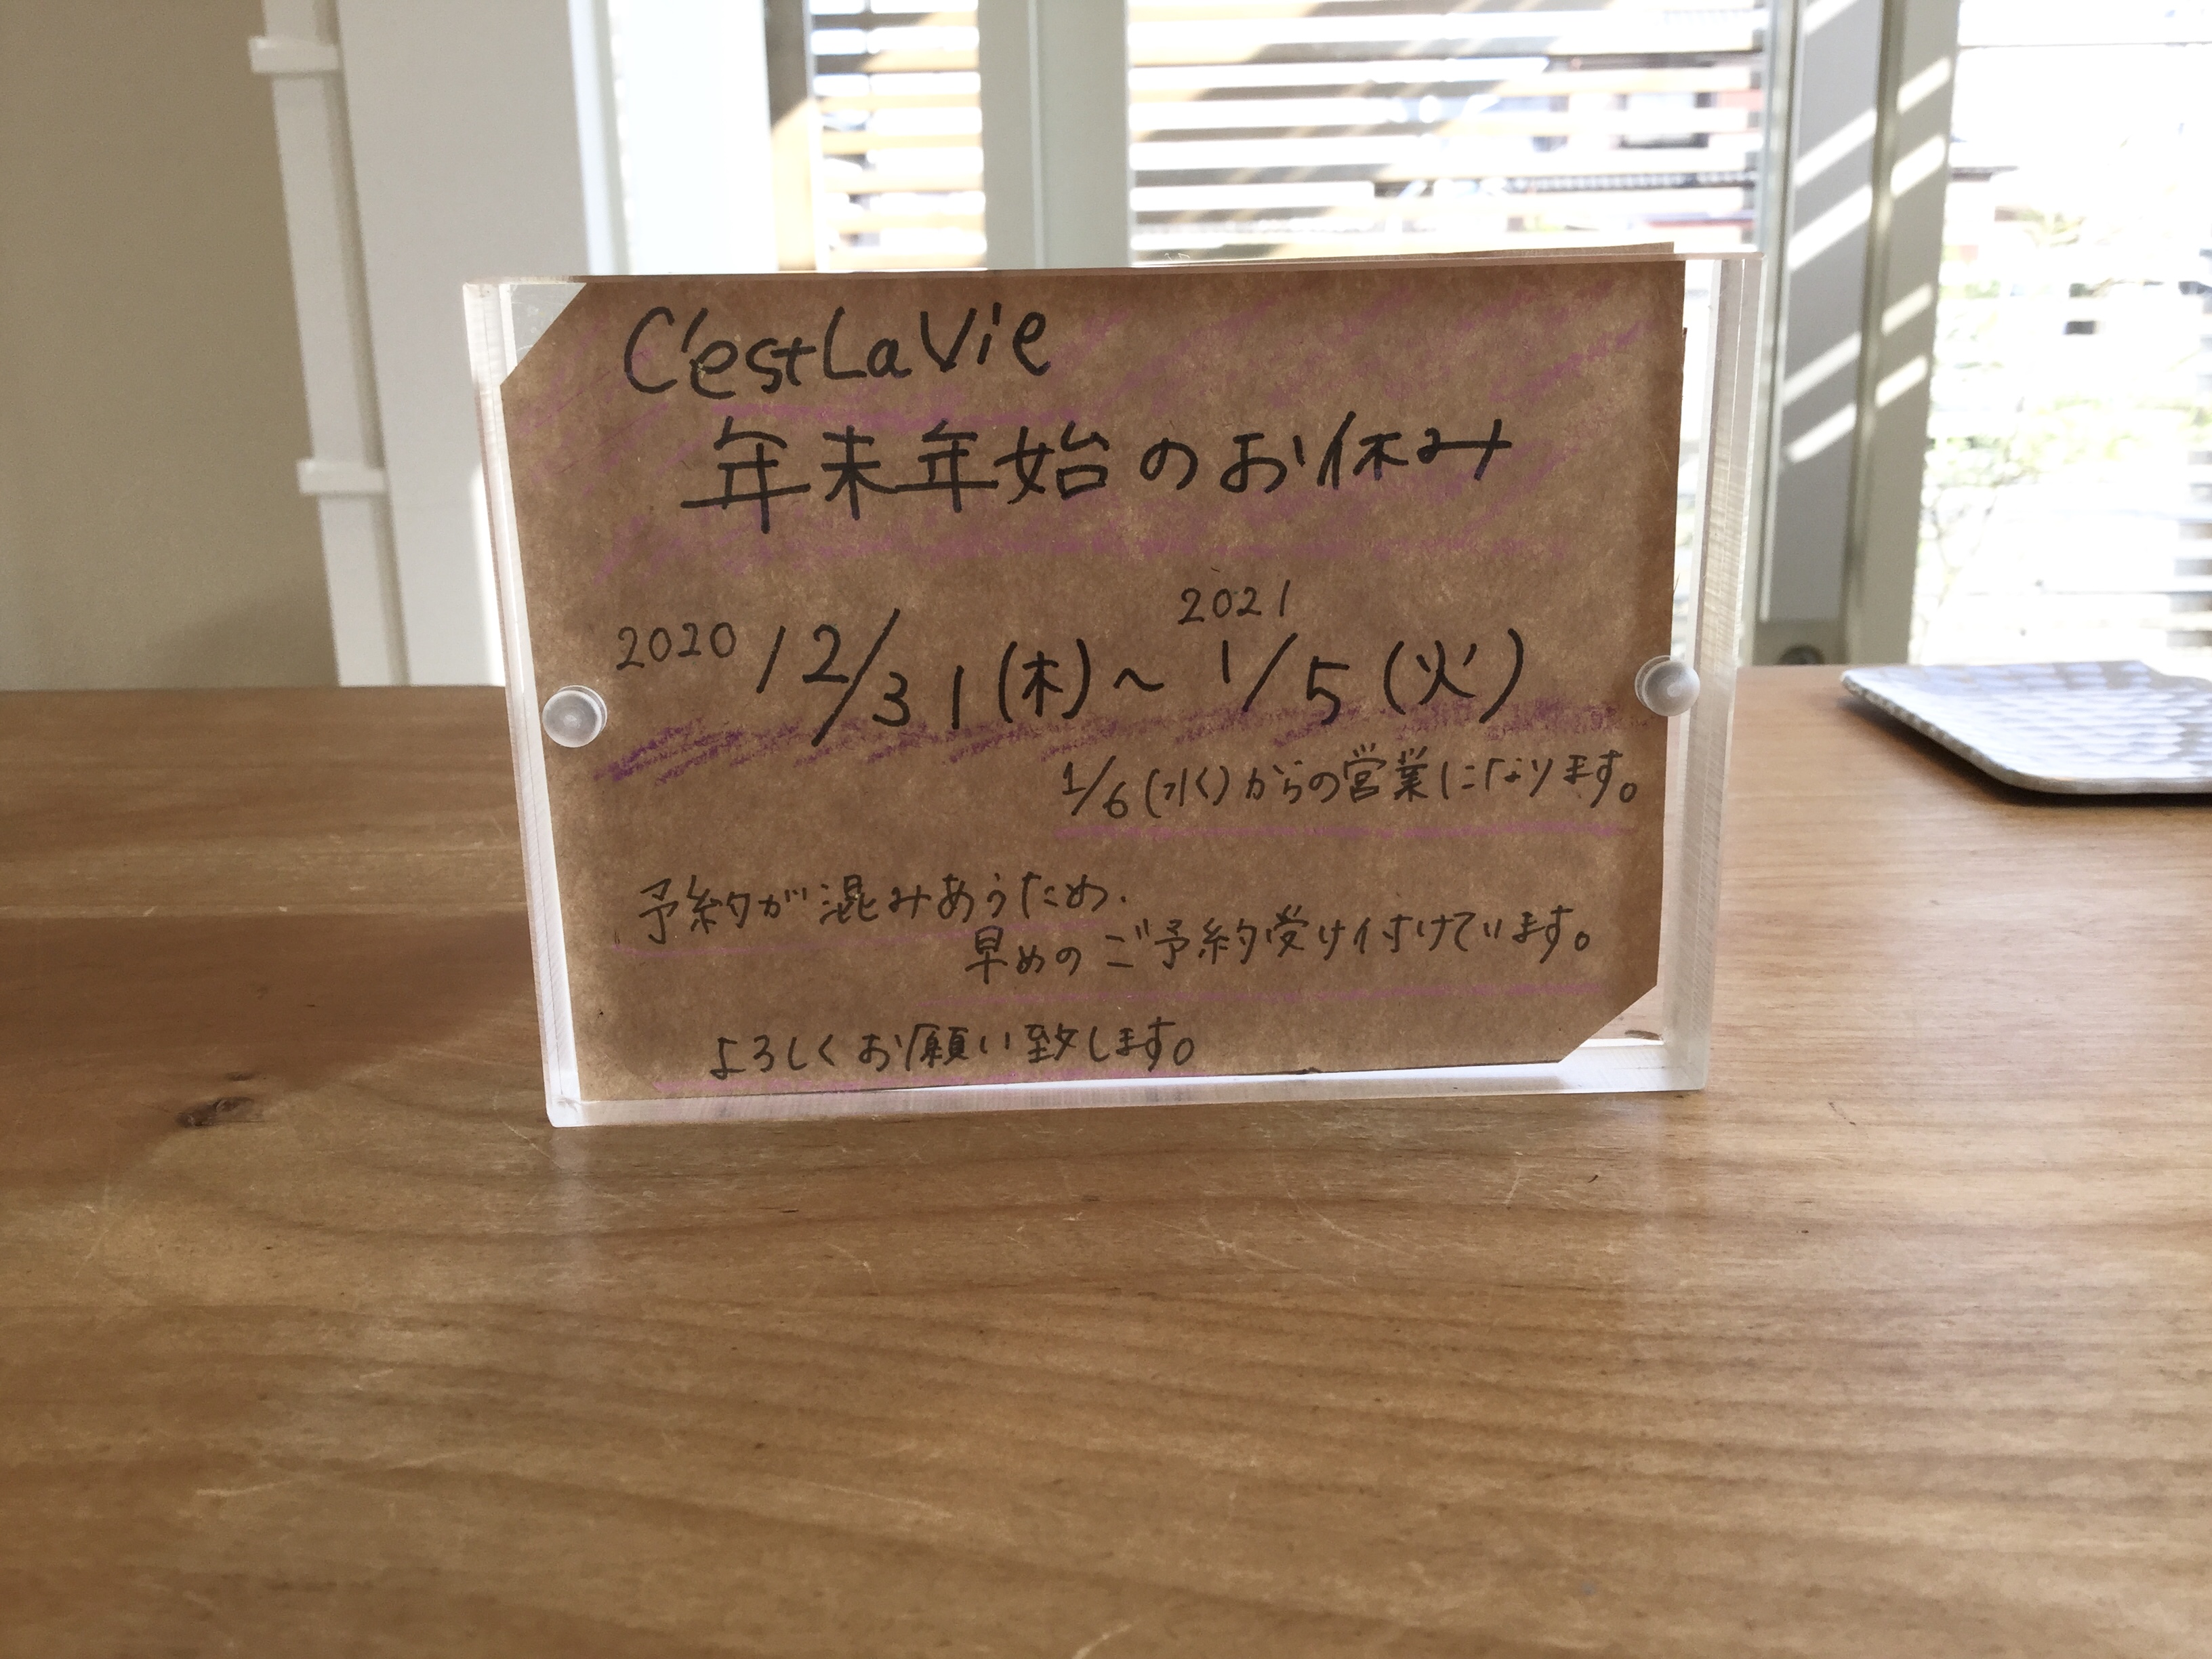 C'est La Vie
年末年始のお休み
2020 12/31(木)~2021 1/5(火)
1/6(水)からの営業になります。
予約が混みあうため.
早めのご予約受け付けています。
よろしくお願い致します。